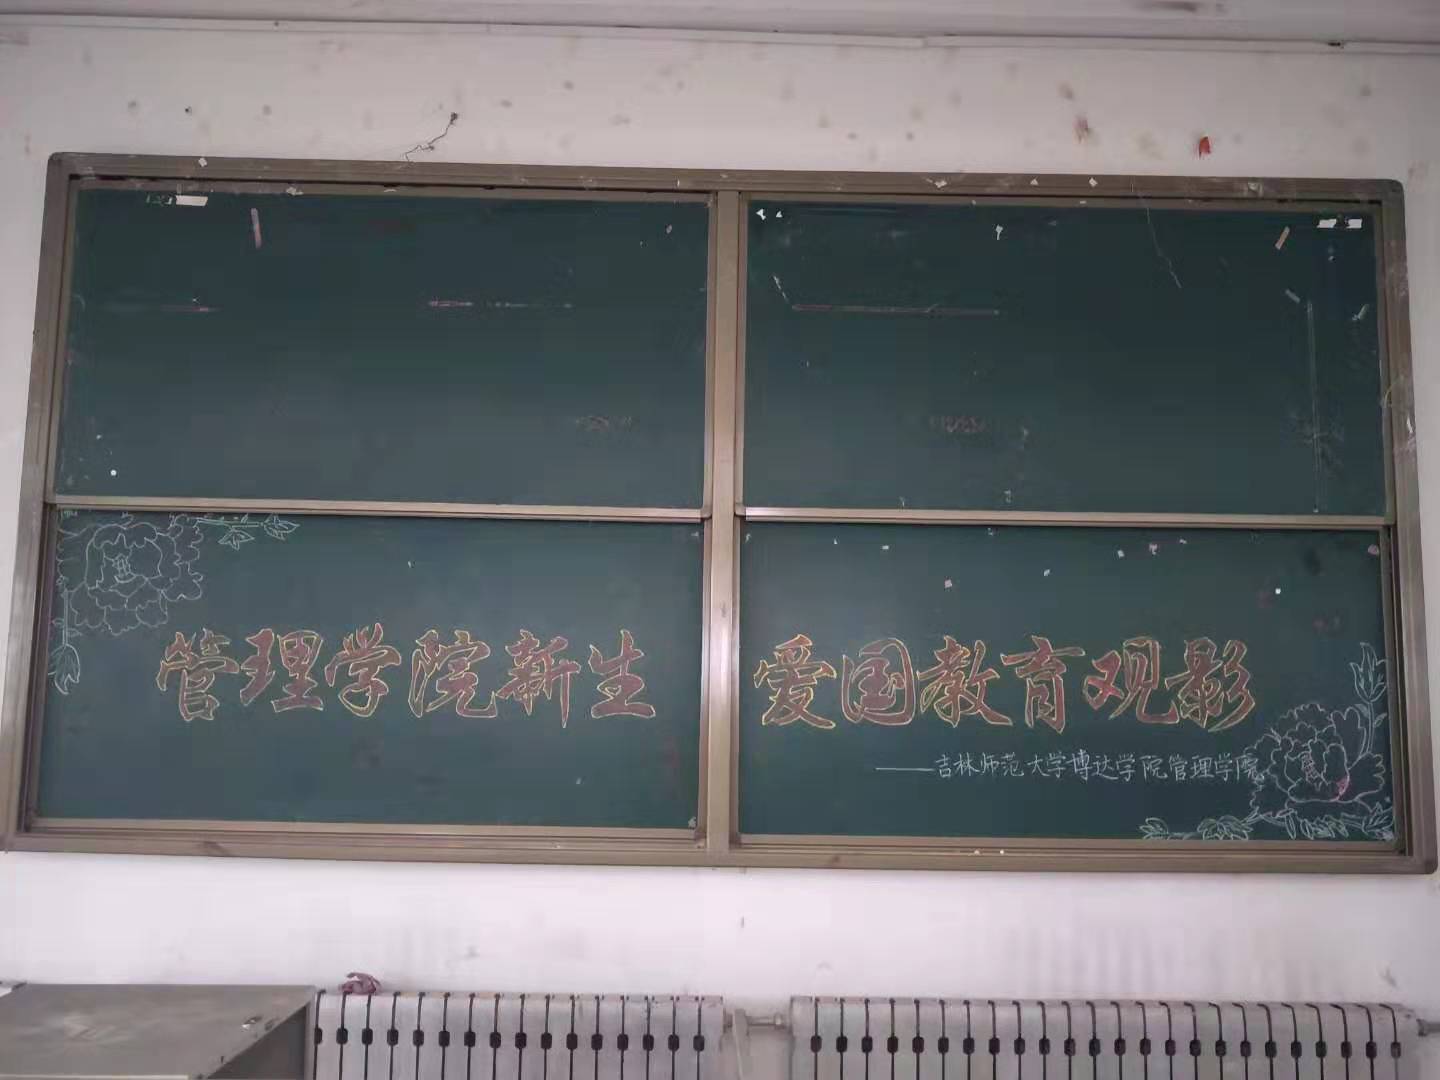 管理学院新生 爱国教育观影
——吉林师范大学博达学院管理学院